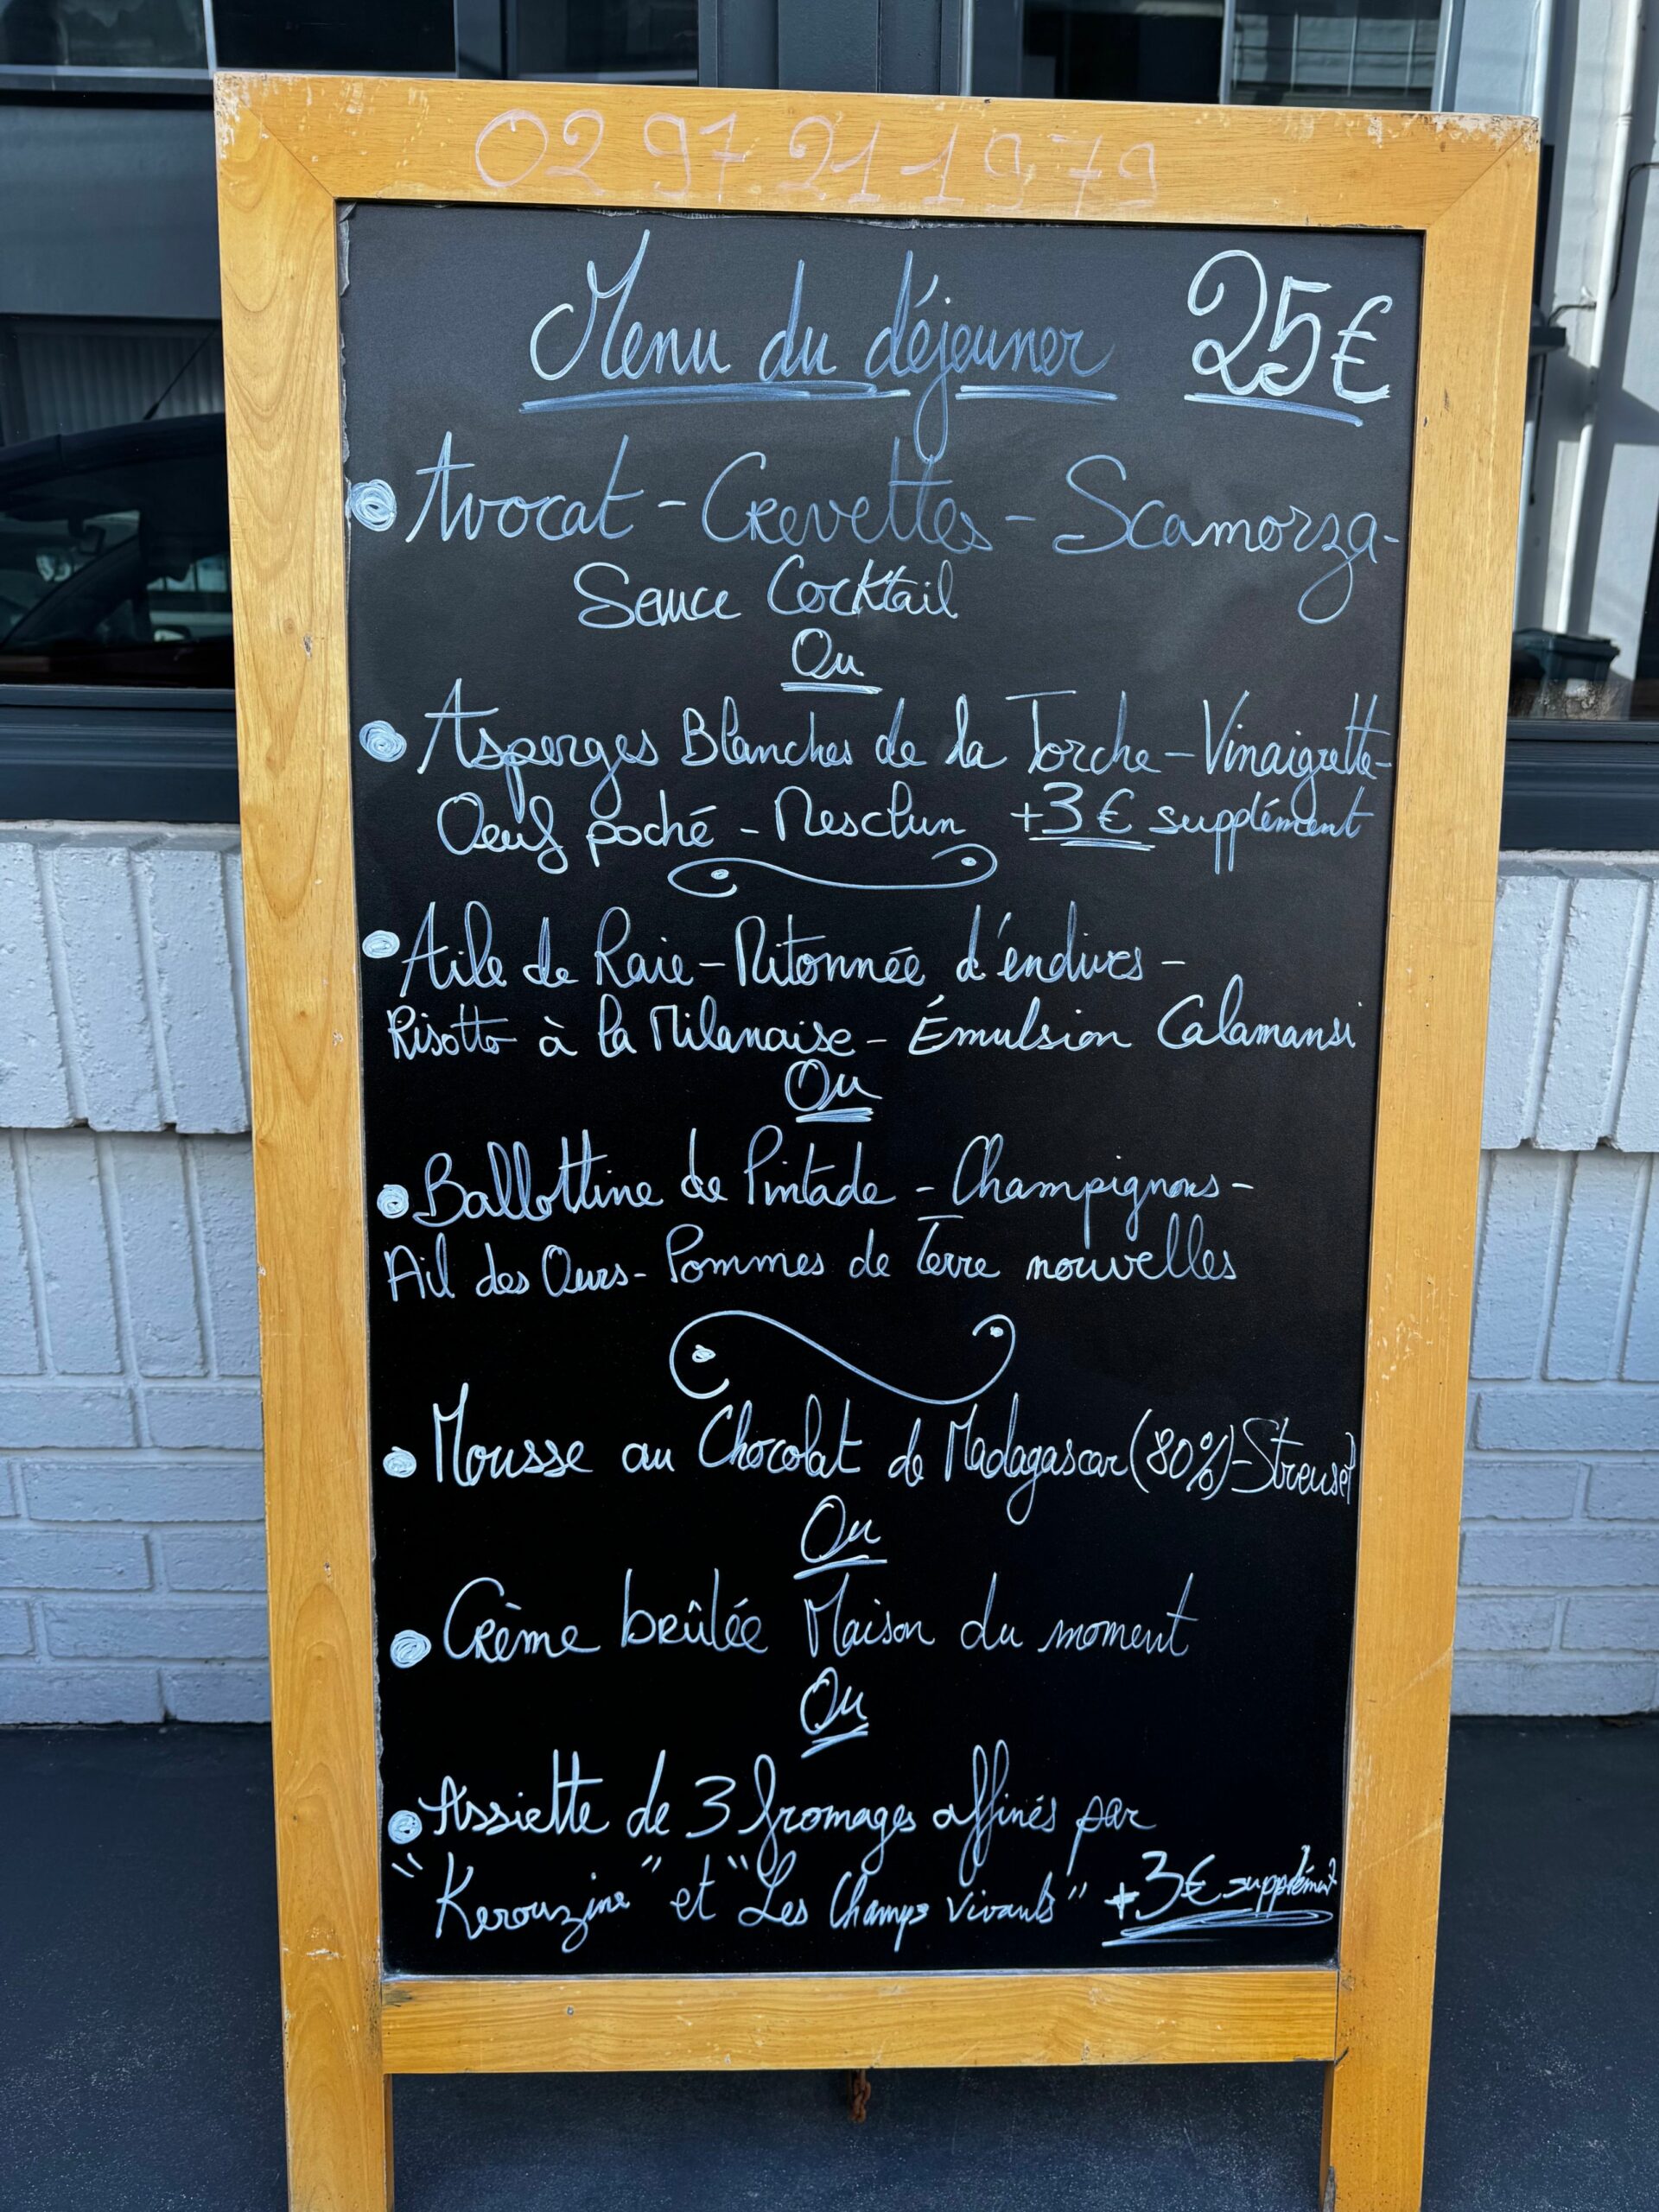 02 97 21 19 79
Menu du déjeuner 25€
Avocat - Crevettes - Scamorza -
Sauce Cocktail
Ou
Asperges Blanches de la Torche - Vinaigrette -
Oeuf poché - Mesclun +3€ supplément
Aile de Raie - Mitonnée d'endives -
Risotto à la Milanaise - Émulsion Calamansi
Ou
Ballottine de Pintade - Champignons -
Ail des Ours - Pommes de Terre nouvelles
Mousse au Chocolat de Madagascar (80%) - Streusel
Ou
Crème brûlée Maison du moment
Ou
Assiette de 3 fromages affinés par
"Kerouzine" et "Les Champs vivants" +3€ supplément